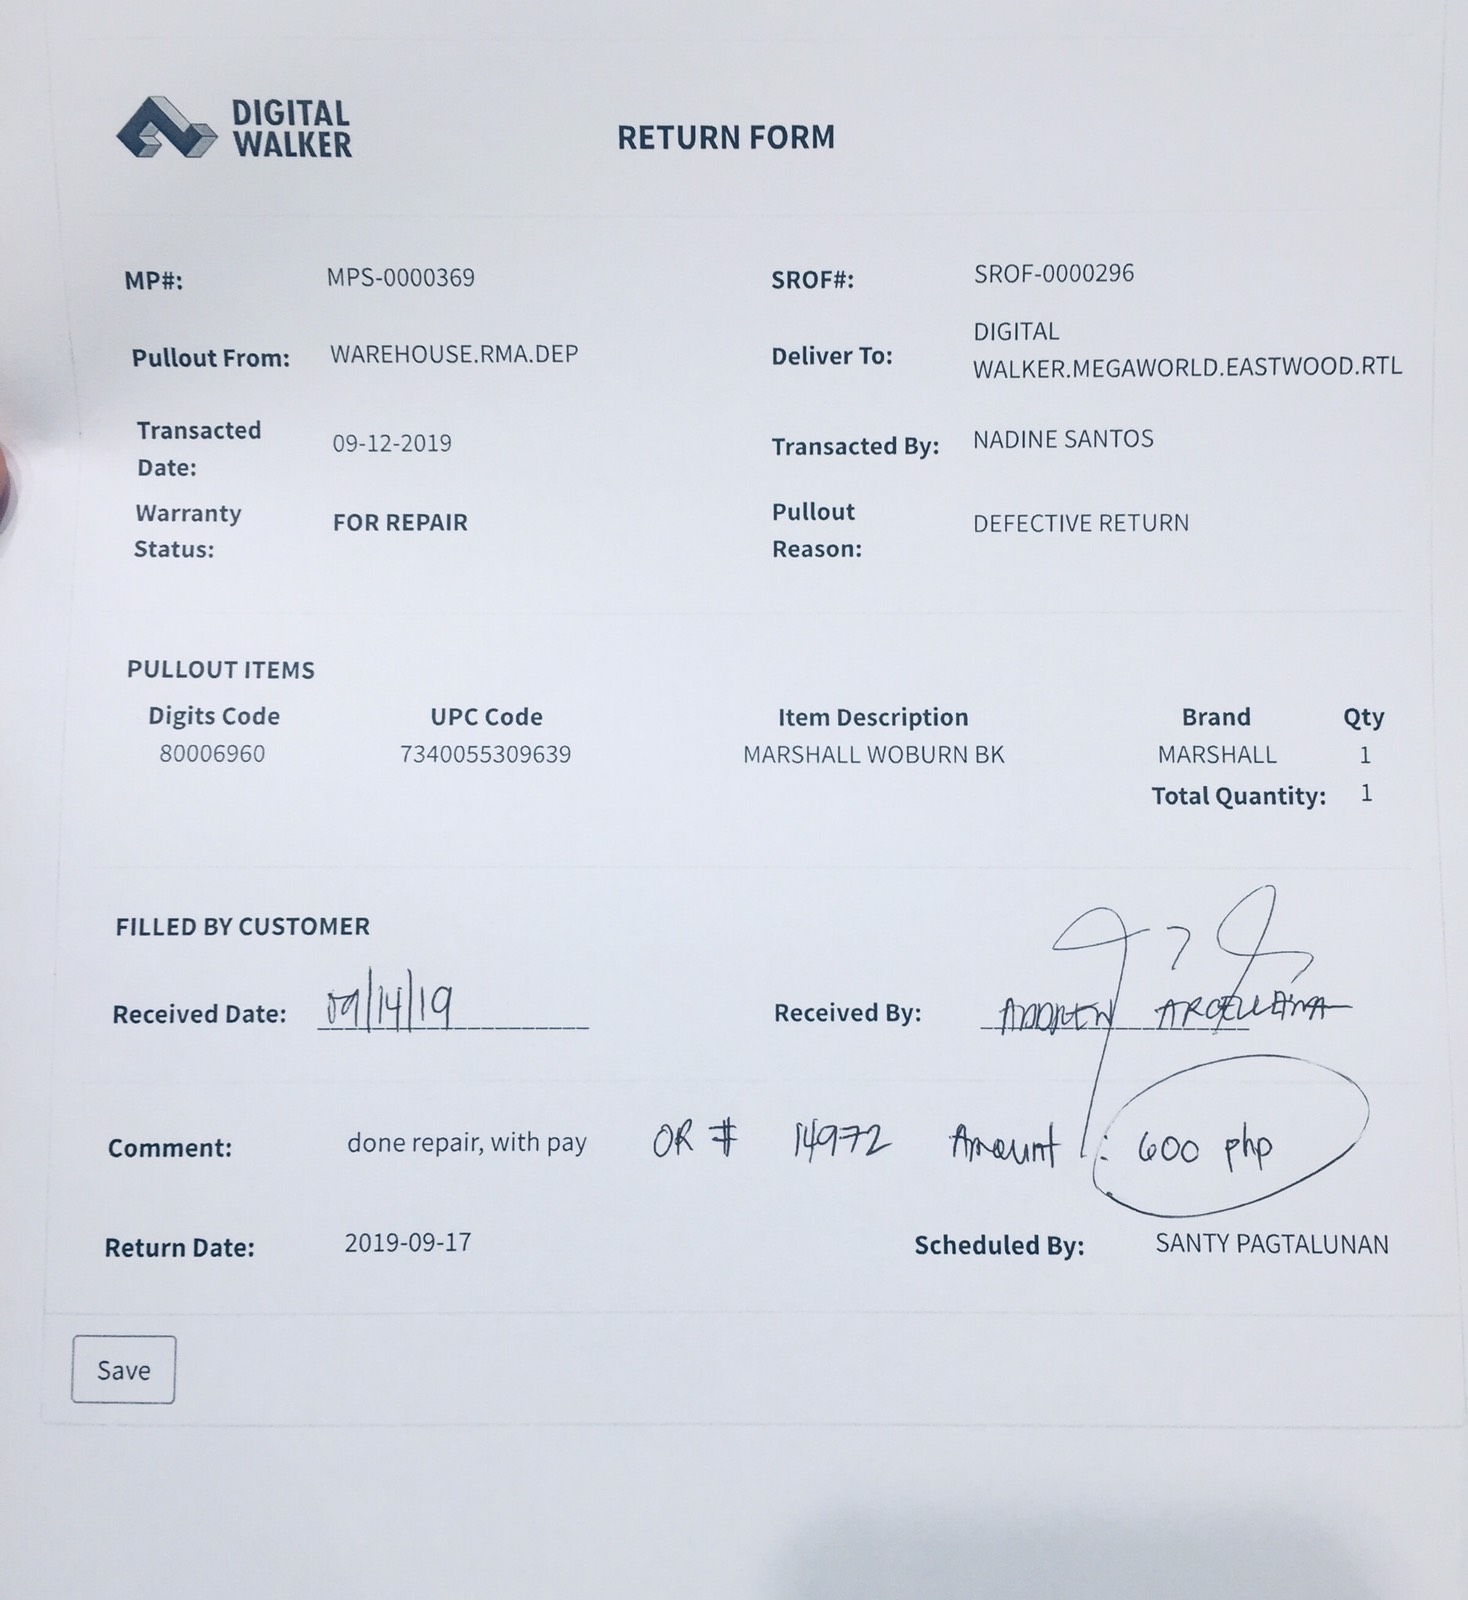 DIGITAL
WALKER
RETURN FORM
MP#: MPS-0000369 SROF#: SROF-0000296
Pullout From: WAREHOUSE.RMA.DEP Deliver To: DIGITAL
WALKER.MEGAWORLD.EASTWOOD.RTL
Transacted
Date: 09-12-2019 Transacted By: NADINE SANTOS
Warranty
Status: FOR REPAIR Pullout
Reason: DEFECTIVE RETURN
PULLOUT ITEMS
Digits Code UPC Code Item Description Brand Qty
80006960 7340055309639 MARSHALL WOBURN BK MARSHALL 1
Total Quantity: 1
FILLED BY CUSTOMER
Received Date: 09/14/19 Received By:
Comment: done repair, with pay OR # 14972 Amount : 600 php
Return Date: 2019-09-17 Scheduled By: SANTY PAGTALUNAN
Save